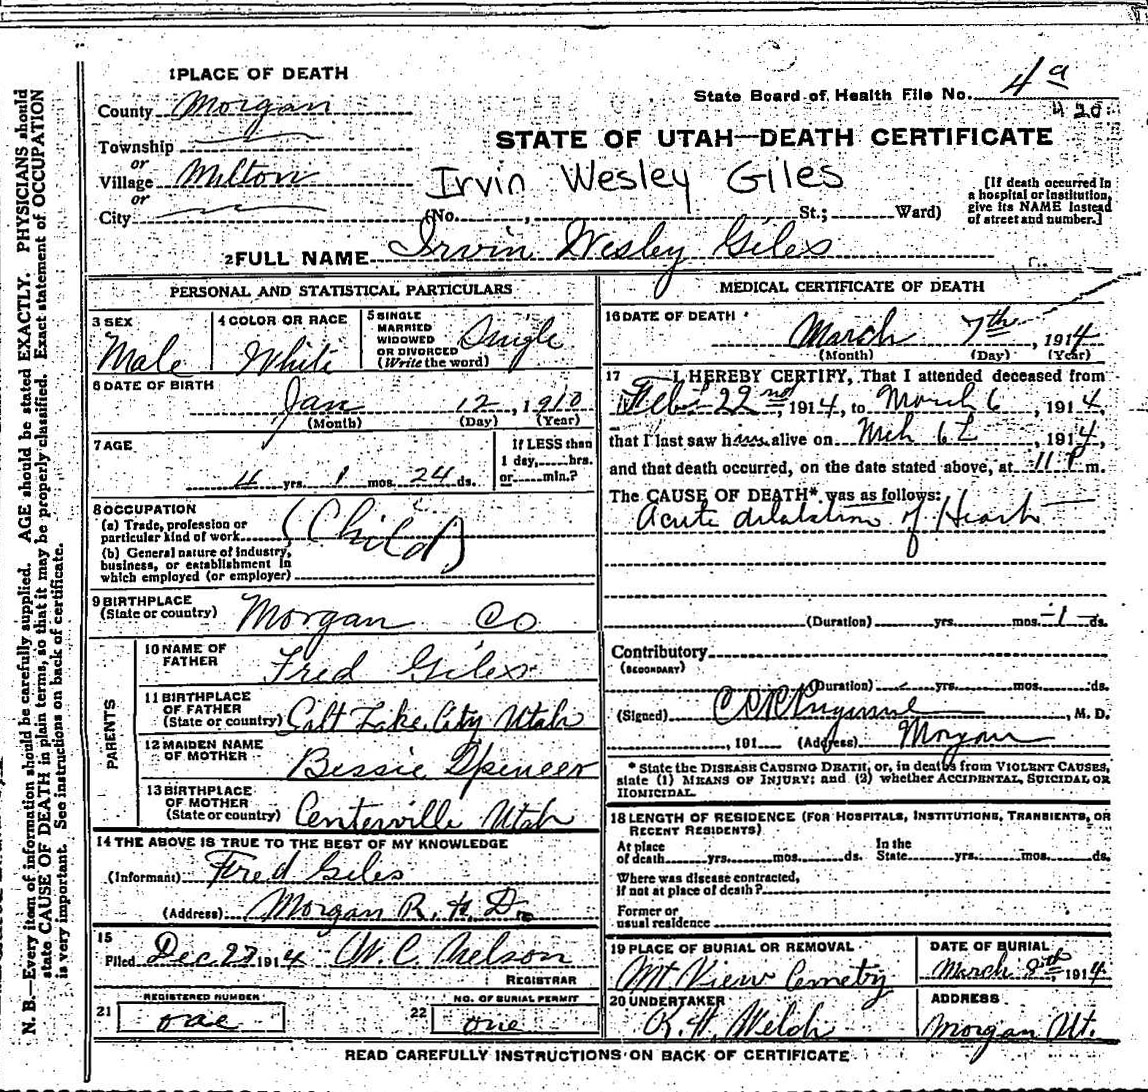 1 PLACE OF DEATH
County Morgan
State Board of Health File No. 4a
420
Township
or
Village Milton
or
City
STATE OF UTAH—DEATH CERTIFICATE
Irvin Wesley Giles
(No. , St.; Ward)
[If death occurred in
a hospital or institution,
give its NAME instead
of street and number.]
2 FULL NAME Irvin Wesley Giles
PERSONAL AND STATISTICAL PARTICULARS
3 SEX
Male
4 COLOR OR RACE
White
5 SINGLE
MARRIED
WIDOWED
OR DIVORCED
(Write the word)
Single
6 DATE OF BIRTH
Jan 12, 1910
(Month) (Day) (Year)
7 AGE
4 yrs. 1 mos. 24 ds.
If LESS than
1 day, hrs.
or min.?
8 OCCUPATION
(a) Trade, profession or
particular kind of work
(b) General nature of industry,
business, or establishment in
which employed (or employer)
(Child)
9 BIRTHPLACE
(State or country)
Morgan Co
PARENTS
10 NAME OF
FATHER
Fred Giles
11 BIRTHPLACE
OF FATHER
(State or country)
Salt Lake City Utah
12 MAIDEN NAME
OF MOTHER
Bessie Spencer
13 BIRTHPLACE
OF MOTHER
(State or country)
Centerville Utah
14 THE ABOVE IS TRUE TO THE BEST OF MY KNOWLEDGE
(Informant) Fred Giles
(Address) Morgan R. F. D.
15
Filed Dec 27 1914 W. C. Nelson
REGISTRAR
REGISTERED NUMBER
21 one
NO. OF BURIAL PERMIT
22 one
MEDICAL CERTIFICATE OF DEATH
16 DATE OF DEATH
March 7th, 1914
(Month) (Day) (Year)
17 I HEREBY CERTIFY, That I attended deceased from
Feb 22nd, 1914, to March 6, 1914,
that I last saw him alive on Mch 6th, 1914,
and that death occurred, on the date stated above, at 11 P m.
The CAUSE OF DEATH* was as follows:
Acute dilatation of Heart
(Duration) yrs. mos. 1 ds.
Contributory
(SECONDARY)
(Duration) yrs. mos. ds.
(Signed) , M. D.
, 191 (Address) Morgan
* State the DISEASE CAUSING DEATH, or, in deaths from VIOLENT CAUSES,
state (1) MEANS OF INJURY; and (2) whether ACCIDENTAL, SUICIDAL OR
HOMICIDAL.
18 LENGTH OF RESIDENCE (FOR HOSPITALS, INSTITUTIONS, TRANSIENTS, OR
RECENT RESIDENTS)
At place
of death yrs. mos. ds.
In the
State yrs. mos. ds.
Where was disease contracted,
if not at place of death?
Former or
usual residence
19 PLACE OF BURIAL OR REMOVAL
Mt View Cemetry
DATE OF BURIAL
March 8th, 1914
20 UNDERTAKER
R. H. Welch
ADDRESS
Morgan Ut.
READ CAREFULLY INSTRUCTIONS ON BACK OF CERTIFICATE
N. B.—Every item of information should be carefully supplied. AGE should be stated EXACTLY. PHYSICIANS should
state CAUSE OF DEATH in plain terms, so that it may be properly classified. Exact statement of OCCUPATION
is very important. See instructions on back of certificate.